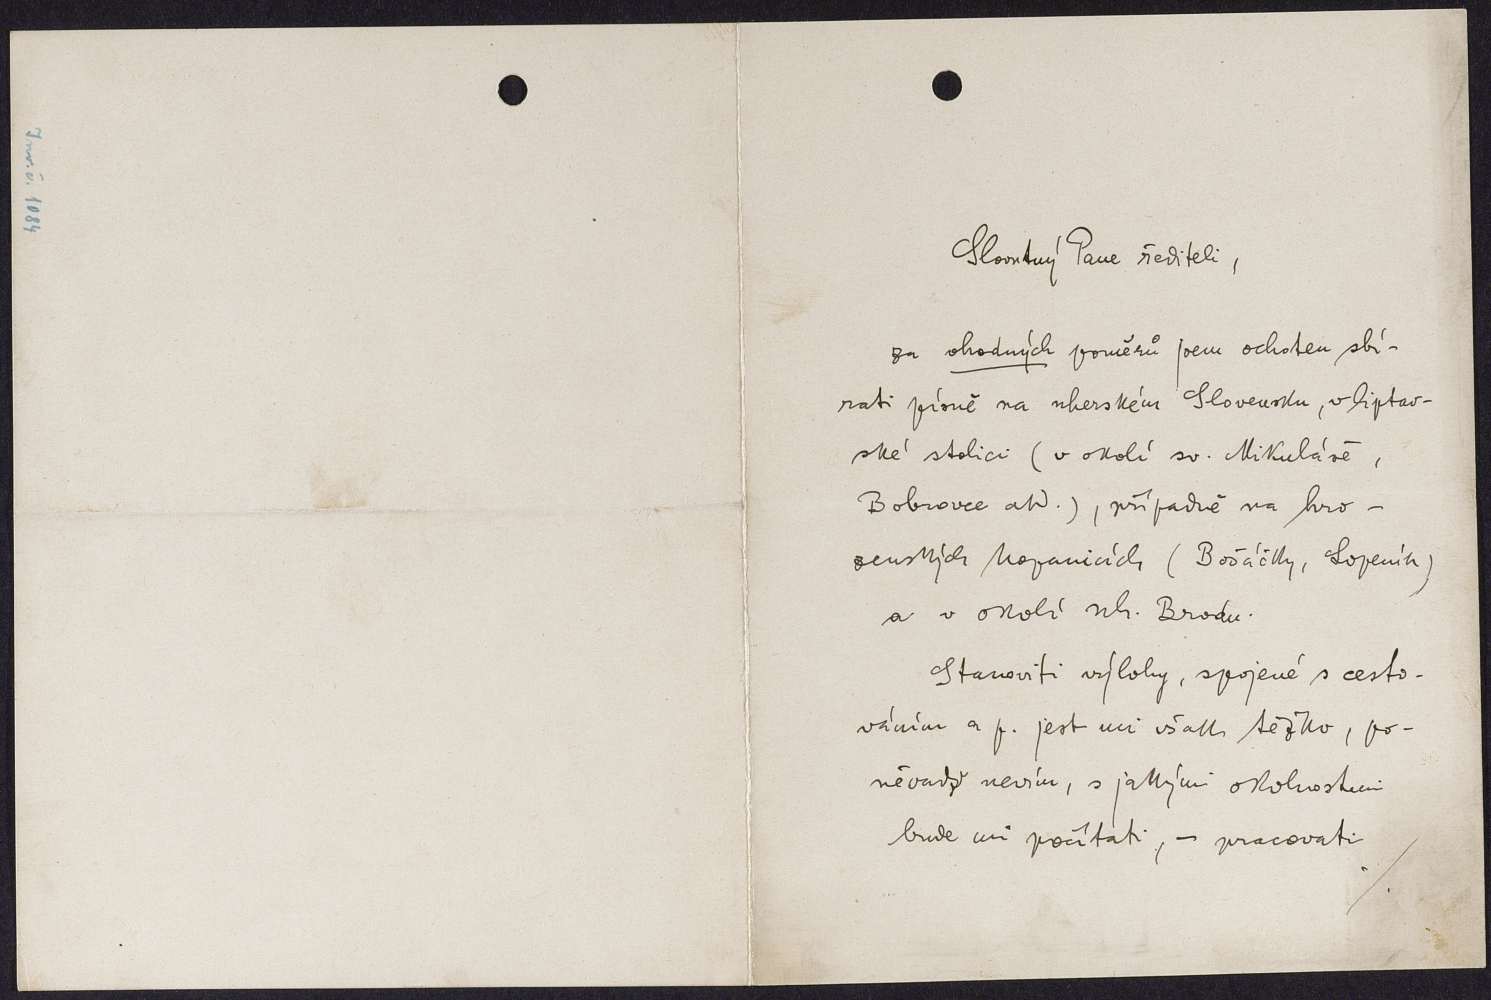 Inv. č. 1084
Slovutný Pane řediteli,
za vhodných poměrů jsem ochoten sbí-
rati písně na uherském Slovensku, v liptav-
ské stolici (v okolí sv. Mikuláše,
Bobrovce atd.), případně na hro-
zenských kopanicích (Bošáčky, Lopeník)
a v okolí uh. Brodu.
Stanoviti výlohy, spojené s cesto-
váním a p. jest mi však těžko, po-
něvadž nevím, s jakými okolnostmi
bude mi počítati, – pracovati
./.